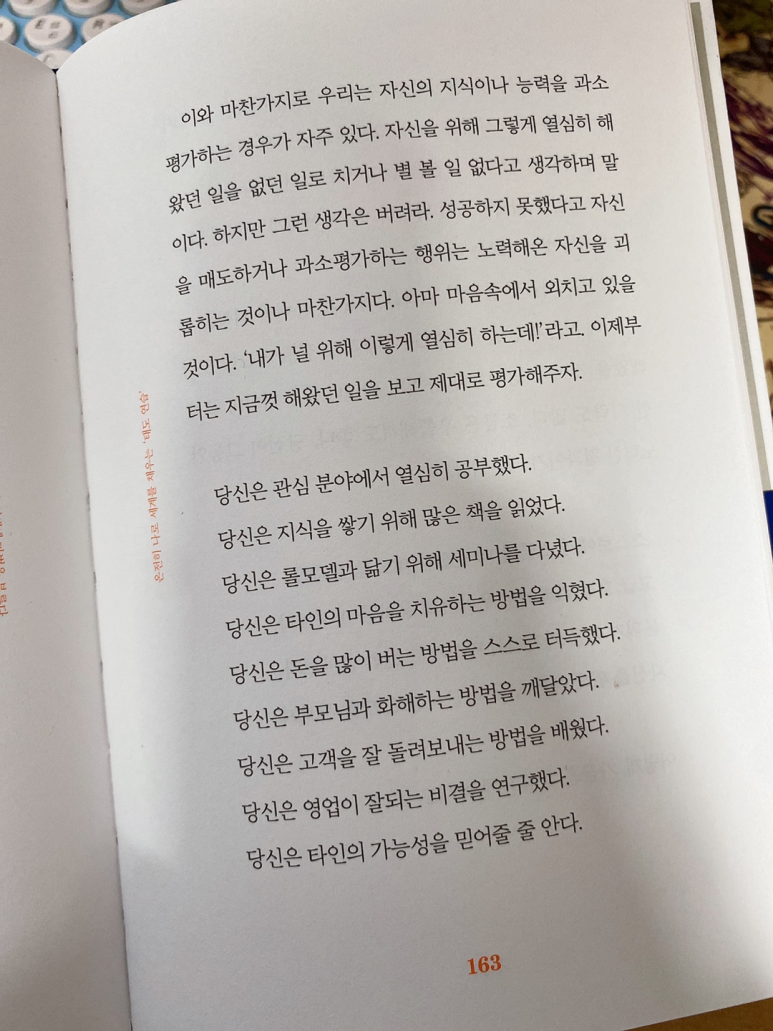 이와 마찬가지로 우리는 자신의 지식이나 능력을 과소
평가하는 경우가 자주 있다. 자신을 위해 그렇게 열심히 해
왔던 일을 없던 일로 치거나 별 볼 일 없다고 생각하며 말
이다. 하지만 그런 생각은 버려라. 성공하지 못했다고 자신
을 매도하거나 과소평가하는 행위는 노력해온 자신을 괴
롭히는 것이나 마찬가지다. 아마 마음속에서 외치고 있을
것이다. ‘내가 널 위해 이렇게 열심히 하는데!’라고. 이제부
터는 지금껏 해왔던 일을 보고 제대로 평가해주자.
당신은 관심 분야에서 열심히 공부했다.
당신은 지식을 쌓기 위해 많은 책을 읽었다.
당신은 롤모델과 닮기 위해 세미나를 다녔다.
당신은 타인의 마음을 치유하는 방법을 익혔다.
당신은 돈을 많이 버는 방법을 스스로 터득했다.
당신은 부모님과 화해하는 방법을 깨달았다.
당신은 고객을 잘 돌려보내는 방법을 배웠다.
당신은 영업이 잘되는 비결을 연구했다.
당신은 타인의 가능성을 믿어줄 줄 안다.
온전히 나로 세계를 채우는 ‘태도 연습’
163